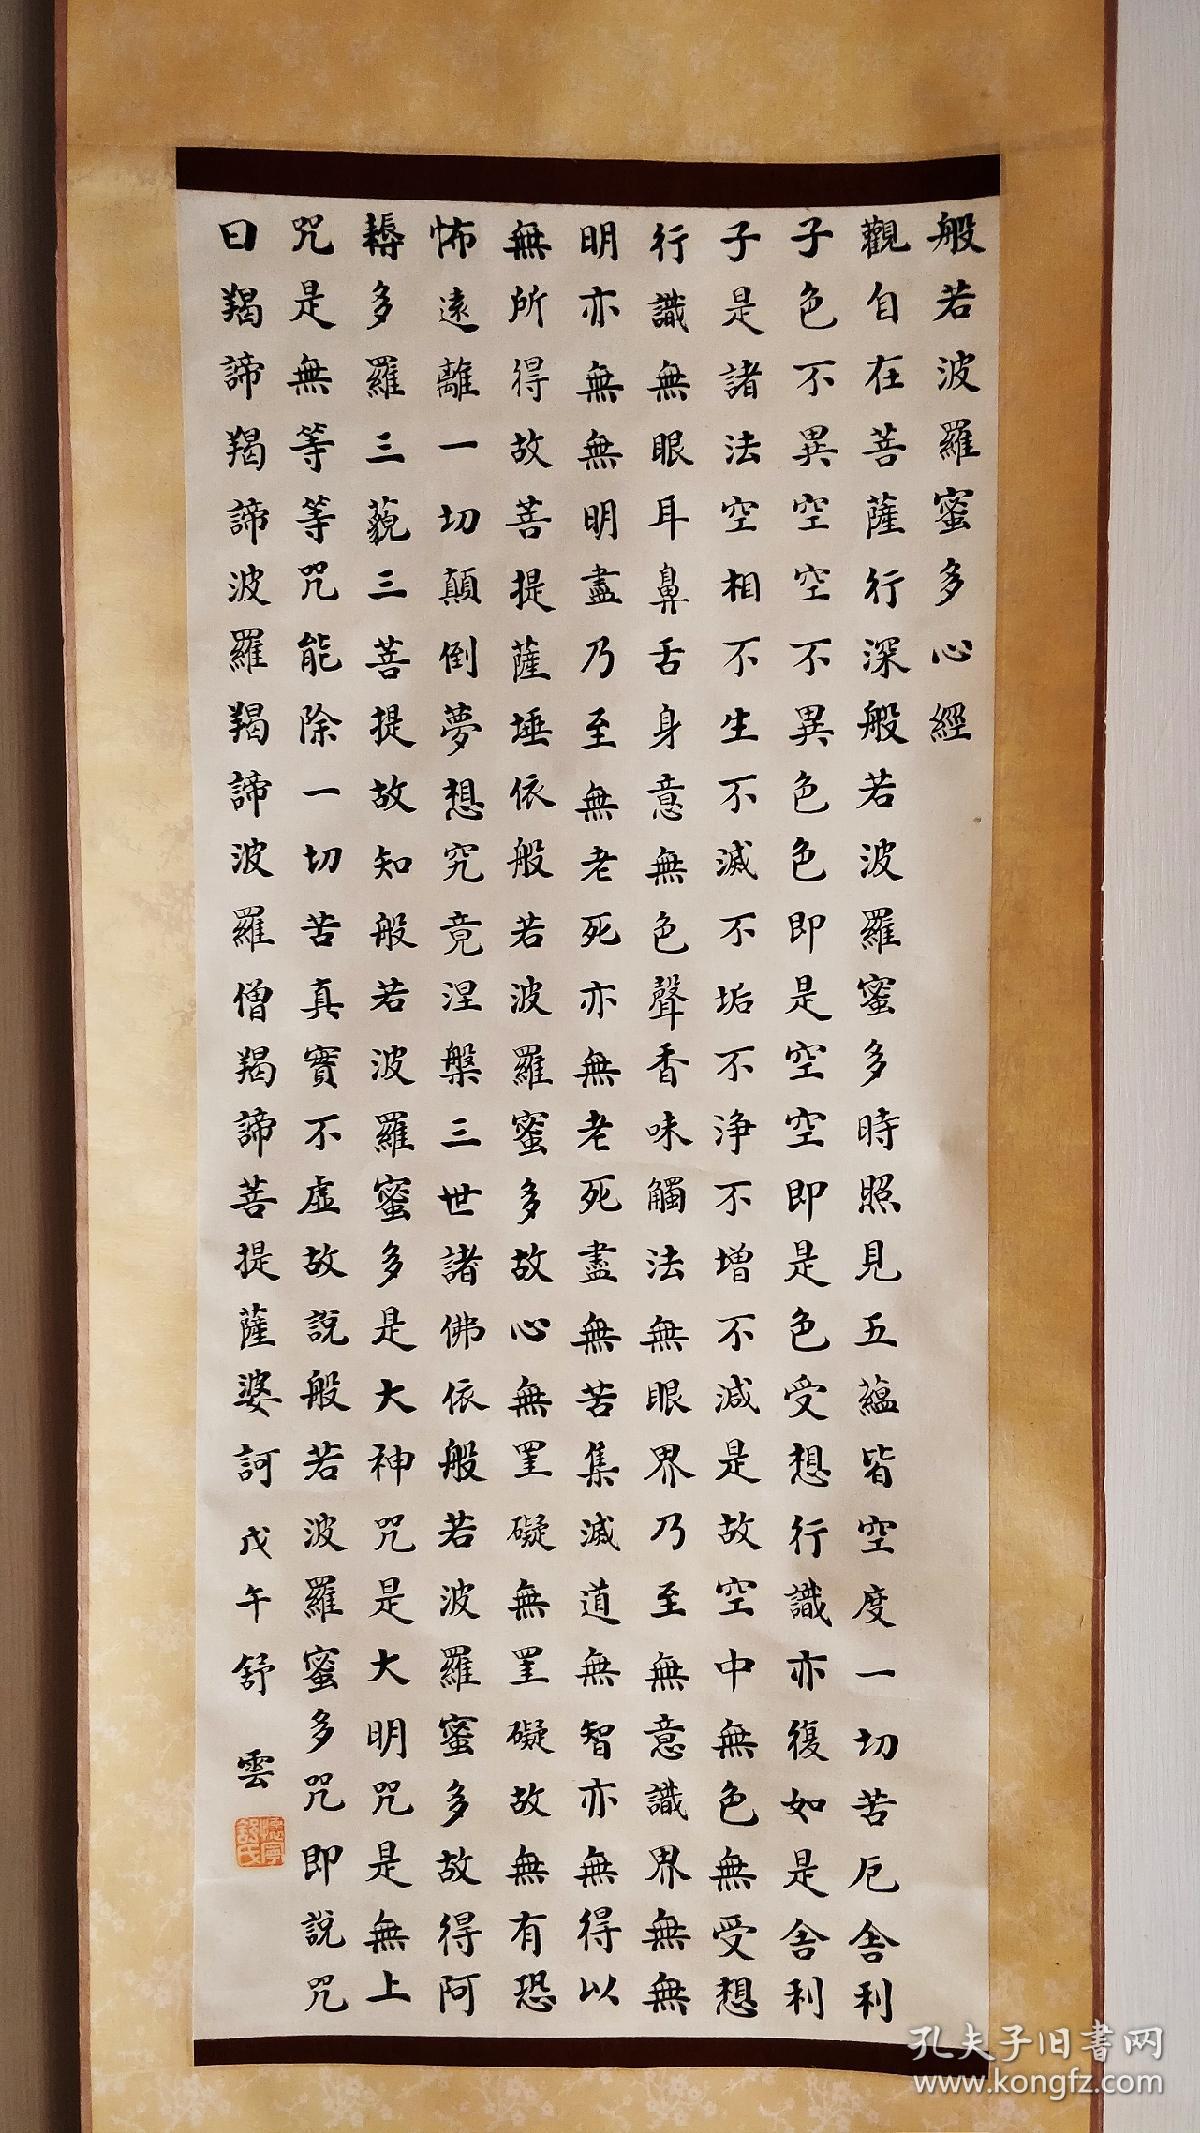 般若波羅蜜多心經
觀自在菩薩行深般若波羅蜜多時照見五蘊皆空度一切苦厄舍利
子色不異空空不異色色即是空空即是色受想行識亦復如是舍利
子是諸法空相不生不滅不垢不淨不增不減是故空中無色無受想
行識無眼耳鼻舌身意無色聲香味觸法無眼界乃至無意識界無無
明亦無無明盡乃至無老死亦無老死盡無苦集滅道無智亦無得以
無所得故菩提薩埵依般若波羅蜜多故心無罣礙無罣礙故無有恐
怖遠離一切顛倒夢想究竟涅槃三世諸佛依般若波羅蜜多故得阿
耨多羅三藐三菩提故知般若波羅蜜多是大神咒是大明咒是無上
咒是無等等咒能除一切苦真實不虛故說般若波羅蜜多咒即說咒
曰羯諦羯諦波羅羯諦波羅僧羯諦菩提薩婆訶 戊午舒 雲
懷寧舒氏
孔夫子旧書网
www.kongfz.com